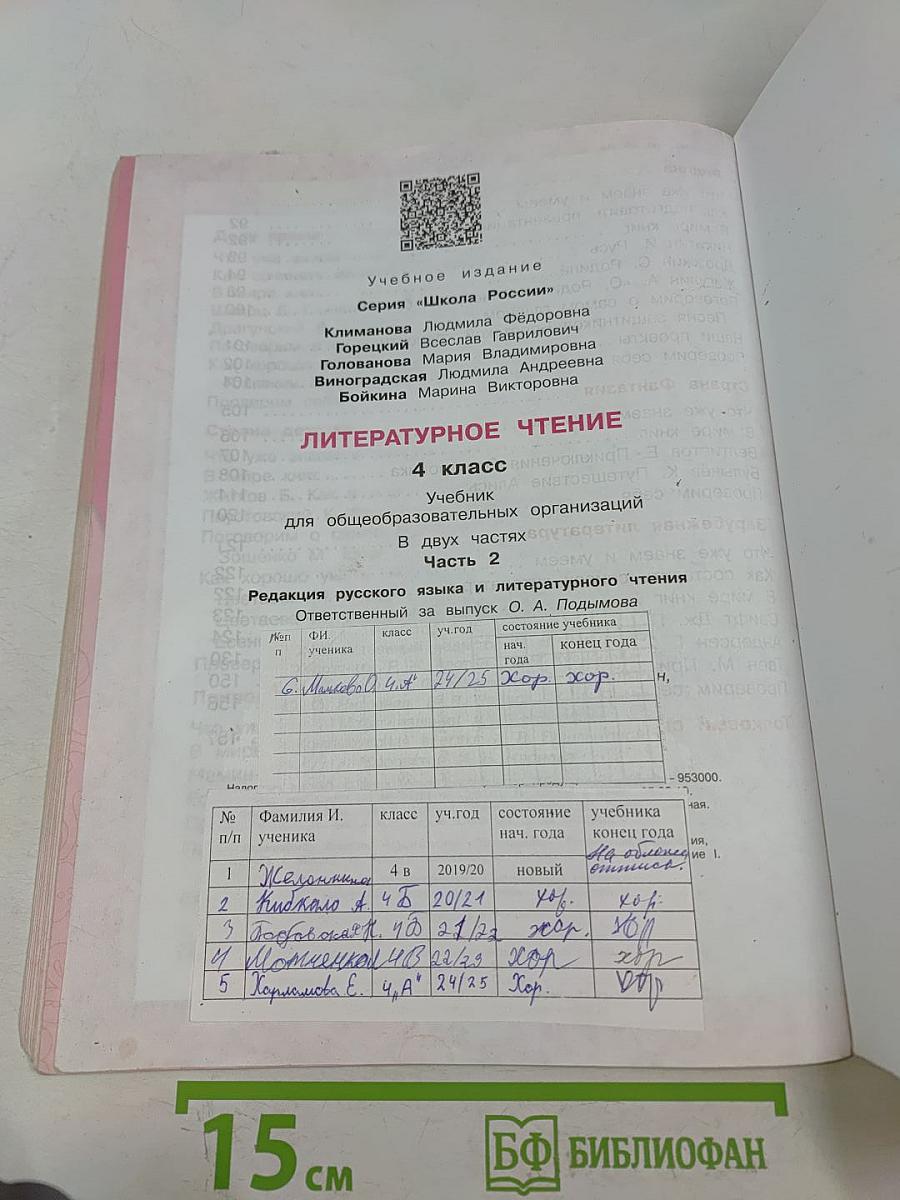 Учебное издание
Серия «Школа России»
Климанова Людмила Фёдоровна
Горецкий Всеслав Гаврилович
Голованова Мария Владимировна
Виноградская Людмила Андреевна
Бойкина Марина Викторовна
ЛИТЕРАТУРНОЕ ЧТЕНИЕ
4 класс
Учебник
для общеобразовательных организаций
В двух частях
Часть 2
Редакция русского языка и литературного чтения
Ответственный за выпуск О. А. Подымова
№п п ФИ. ученика класс уч.год состояние учебника
нач. года конец года
6. 4„А" 24/25 Хор. хор. н,
– 953000.
ная.
№ п/п Фамилия И. ученика класс уч.год состояние нач. года учебника конец года
ия,
ние I.
1 4 в 2019/20 новый На
2 Кибкало А. 4 Б 20/21 хор. хор.
3 4 В хор.
4 4В хор хор
5 Харламова Е. 4„А" 24/25 Хор. хор
15 см
БФ БИБЛИОФАН